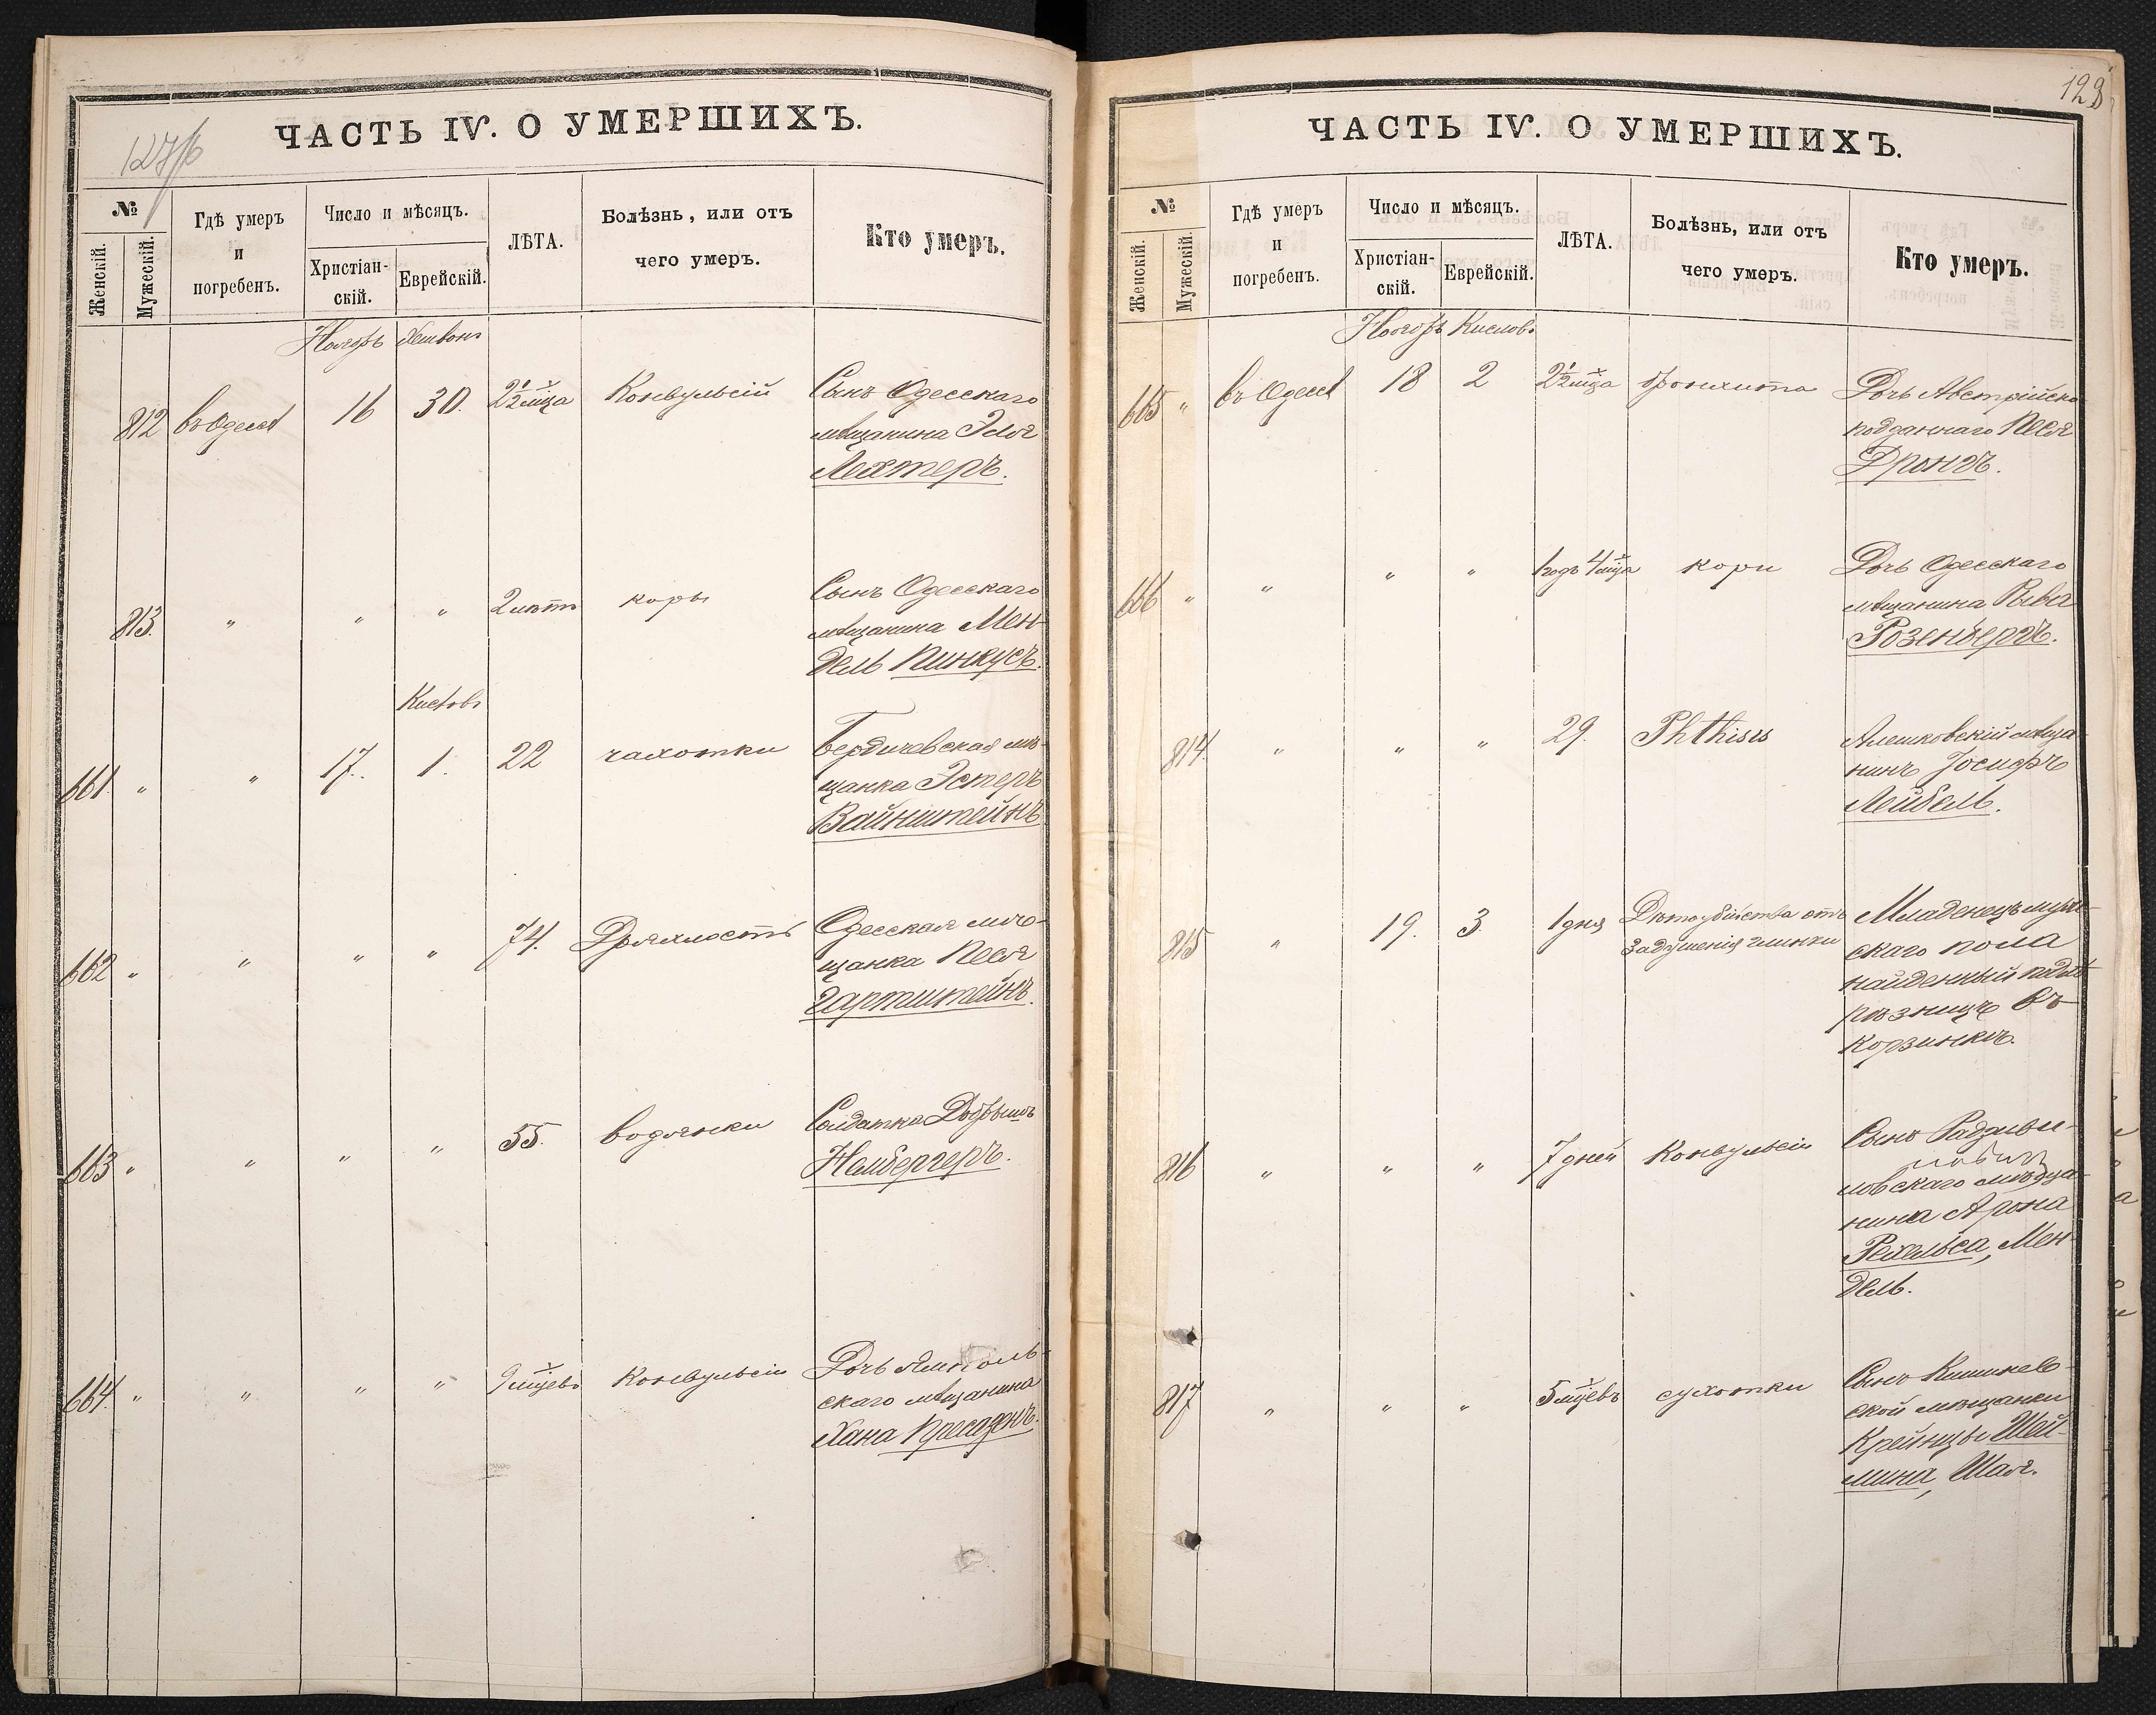 ЧАСТЬ IV. О УМЕРШИХЪ.
№
Женскій.
Мужескій.
Гдѣ умеръ
и
погребенъ.
Число и мѣсяцъ.
Христіан-
скій.
Еврейскій.
ЛѢТА.
Болѣзнь, или отъ
чего умеръ.
Кто умеръ.
812 въ Одессѣ 16 30. 2½ мца Конвульсій Сынъ Одесскаго
мѣщанина Эля
Лехтеръ.
813. " " " 2 лѣтъ корь Сынъ Одесскаго
мѣщанина Мен-
дель Пинкусъ.
Кислевъ
661. " " 17. 1. 22 чахотки Бердичевская мѣ-
щанка Эстеръ
Вайнштейнъ
662 " " " " 74. Дряхлость Одесская мѣ-
щанка Песя
Гартштейнъ.
663 " " " " 55. водянки Солдатка Добрышъ
Нембергеръ.
664. " " " " 9 мцевъ Конвульсіи Дочь Ямполь-
скаго мѣщанина
Хана
ЧАСТЬ IV. О УМЕРШИХЪ.
№
Женскій.
Мужескій.
Гдѣ умеръ
и
погребенъ.
Число и мѣсяцъ.
Христіан-
скій.
Еврейскій.
ЛѢТА.
Болѣзнь, или отъ
чего умеръ.
Кто умеръ.
Кислевъ
665 " въ Одессѣ 18 2 2½ мца бронхита Дочь Австрійско-
подданнаго Песя
Дрондъ.
666 " " " " 1 годъ 4 мца кори Дочь Одесскаго
мѣщанина Рива
Розенбергъ.
814. " " " 29. Phthisis Алешковскій мѣща-
нинъ Іосифъ
Лейбель.
815 " 19. 3 1 дня Дѣтоубійства отъ Младенецъ муже-
задушенія глинки скаго пола
найденный подлѣ
рѣзницъ въ
корзинкѣ.
816 " " " 7 дней Конвульсіи Сынъ Радзиви-
ловскаго мѣща-
нина Арона
Рехельса, Мен-
дель.
817 " " " 5 мцевъ сухотки Сынъ Кишинев-
ской мѣщанки
Крейнцы Шей-
мина, Шая.